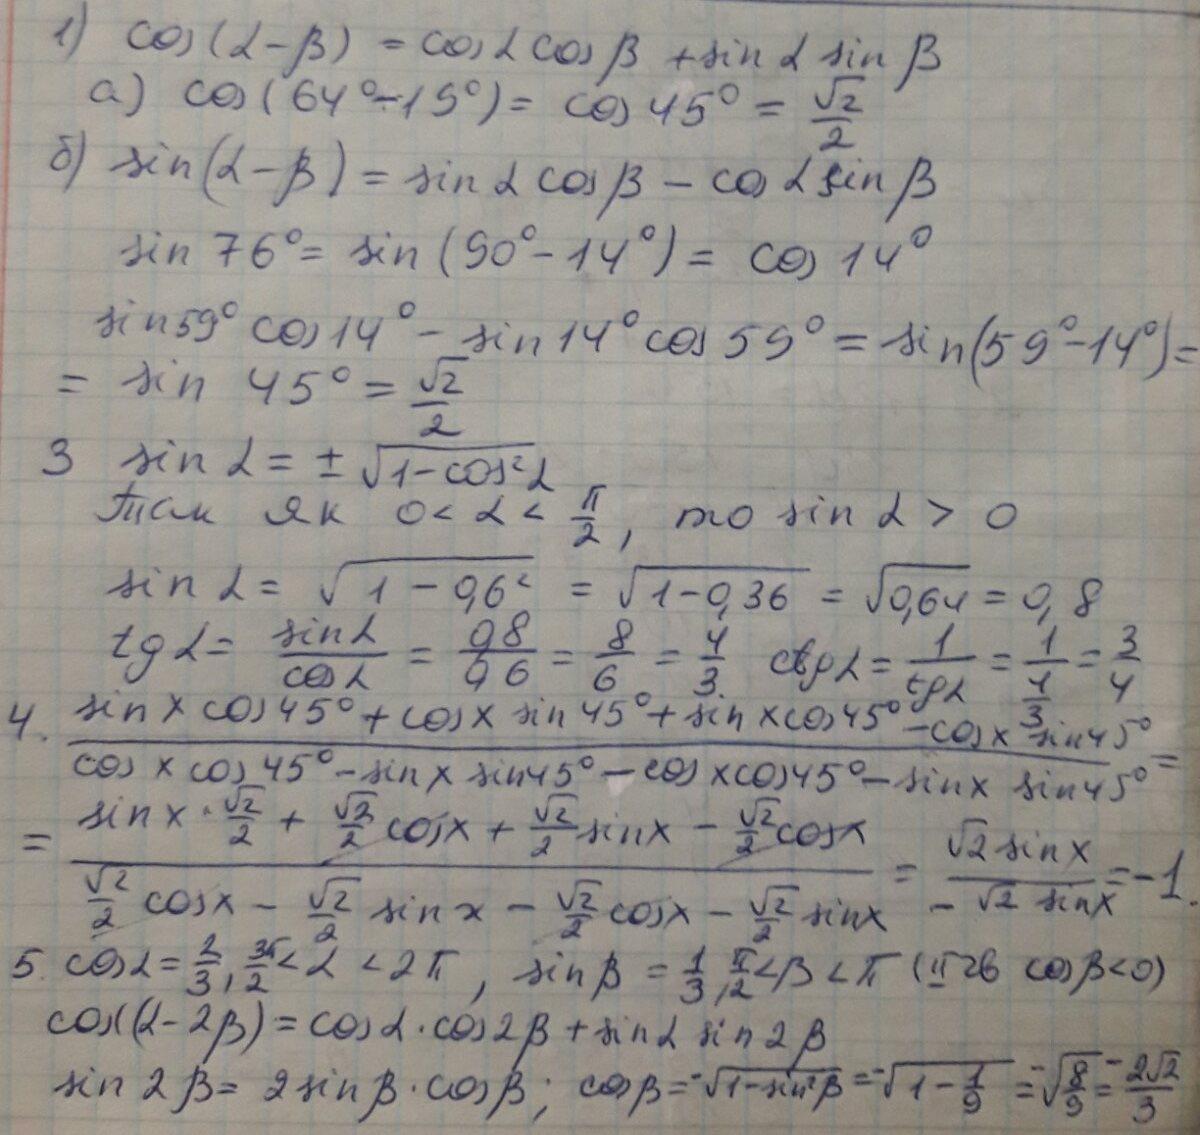 1) cos(α-β) = cosα cosβ + sinα sinβ
а) cos(64°-19°) = cos 45° = √2/2
б) sin(α-β) = sinα cosβ - cosα sinβ
sin 76° = sin (90°-14°) = cos 14°
sin59° cos14° - sin14° cos59° = sin(59°-14°) =
= sin 45° = √2/2
3 sinα = ± √(1-cos²α)
Так як 0 < α < π/2, то sinα > 0
sinα = √(1-0,6²) = √(1-0,36) = √0,64 = 0,8
tgα = sinα/cosα = 0,8/0,6 = 8/6 = 4/3. ctgα = 1/tgα = 1/(4/3) = 3/4
4. (sin x cos45° + cos x sin45° + sin x cos45° - cos x sin45°)/(cos x cos45° - sin x sin45° - cos x cos45° - sin x sin45°) =
= (sin x · √2/2 + √2/2 cos x + √2/2 sin x - √2/2 cos x)/(√2/2 cos x - √2/2 sin x - √2/2 cos x - √2/2 sin x) = (√2 sin x)/(-√2 sin x) = -1.
5. cosα = 2/3, 3π/2 < α < 2π, sinβ = 1/3, π/2 < β < π (II чв cosβ<0)
cos(α-2β) = cosα · cos2β + sinα sin2β
sin2β = 2sinβ · cosβ; cosβ = -√(1-sin²β) = -√(1-1/9) = -√(8/9) = -2√2/3